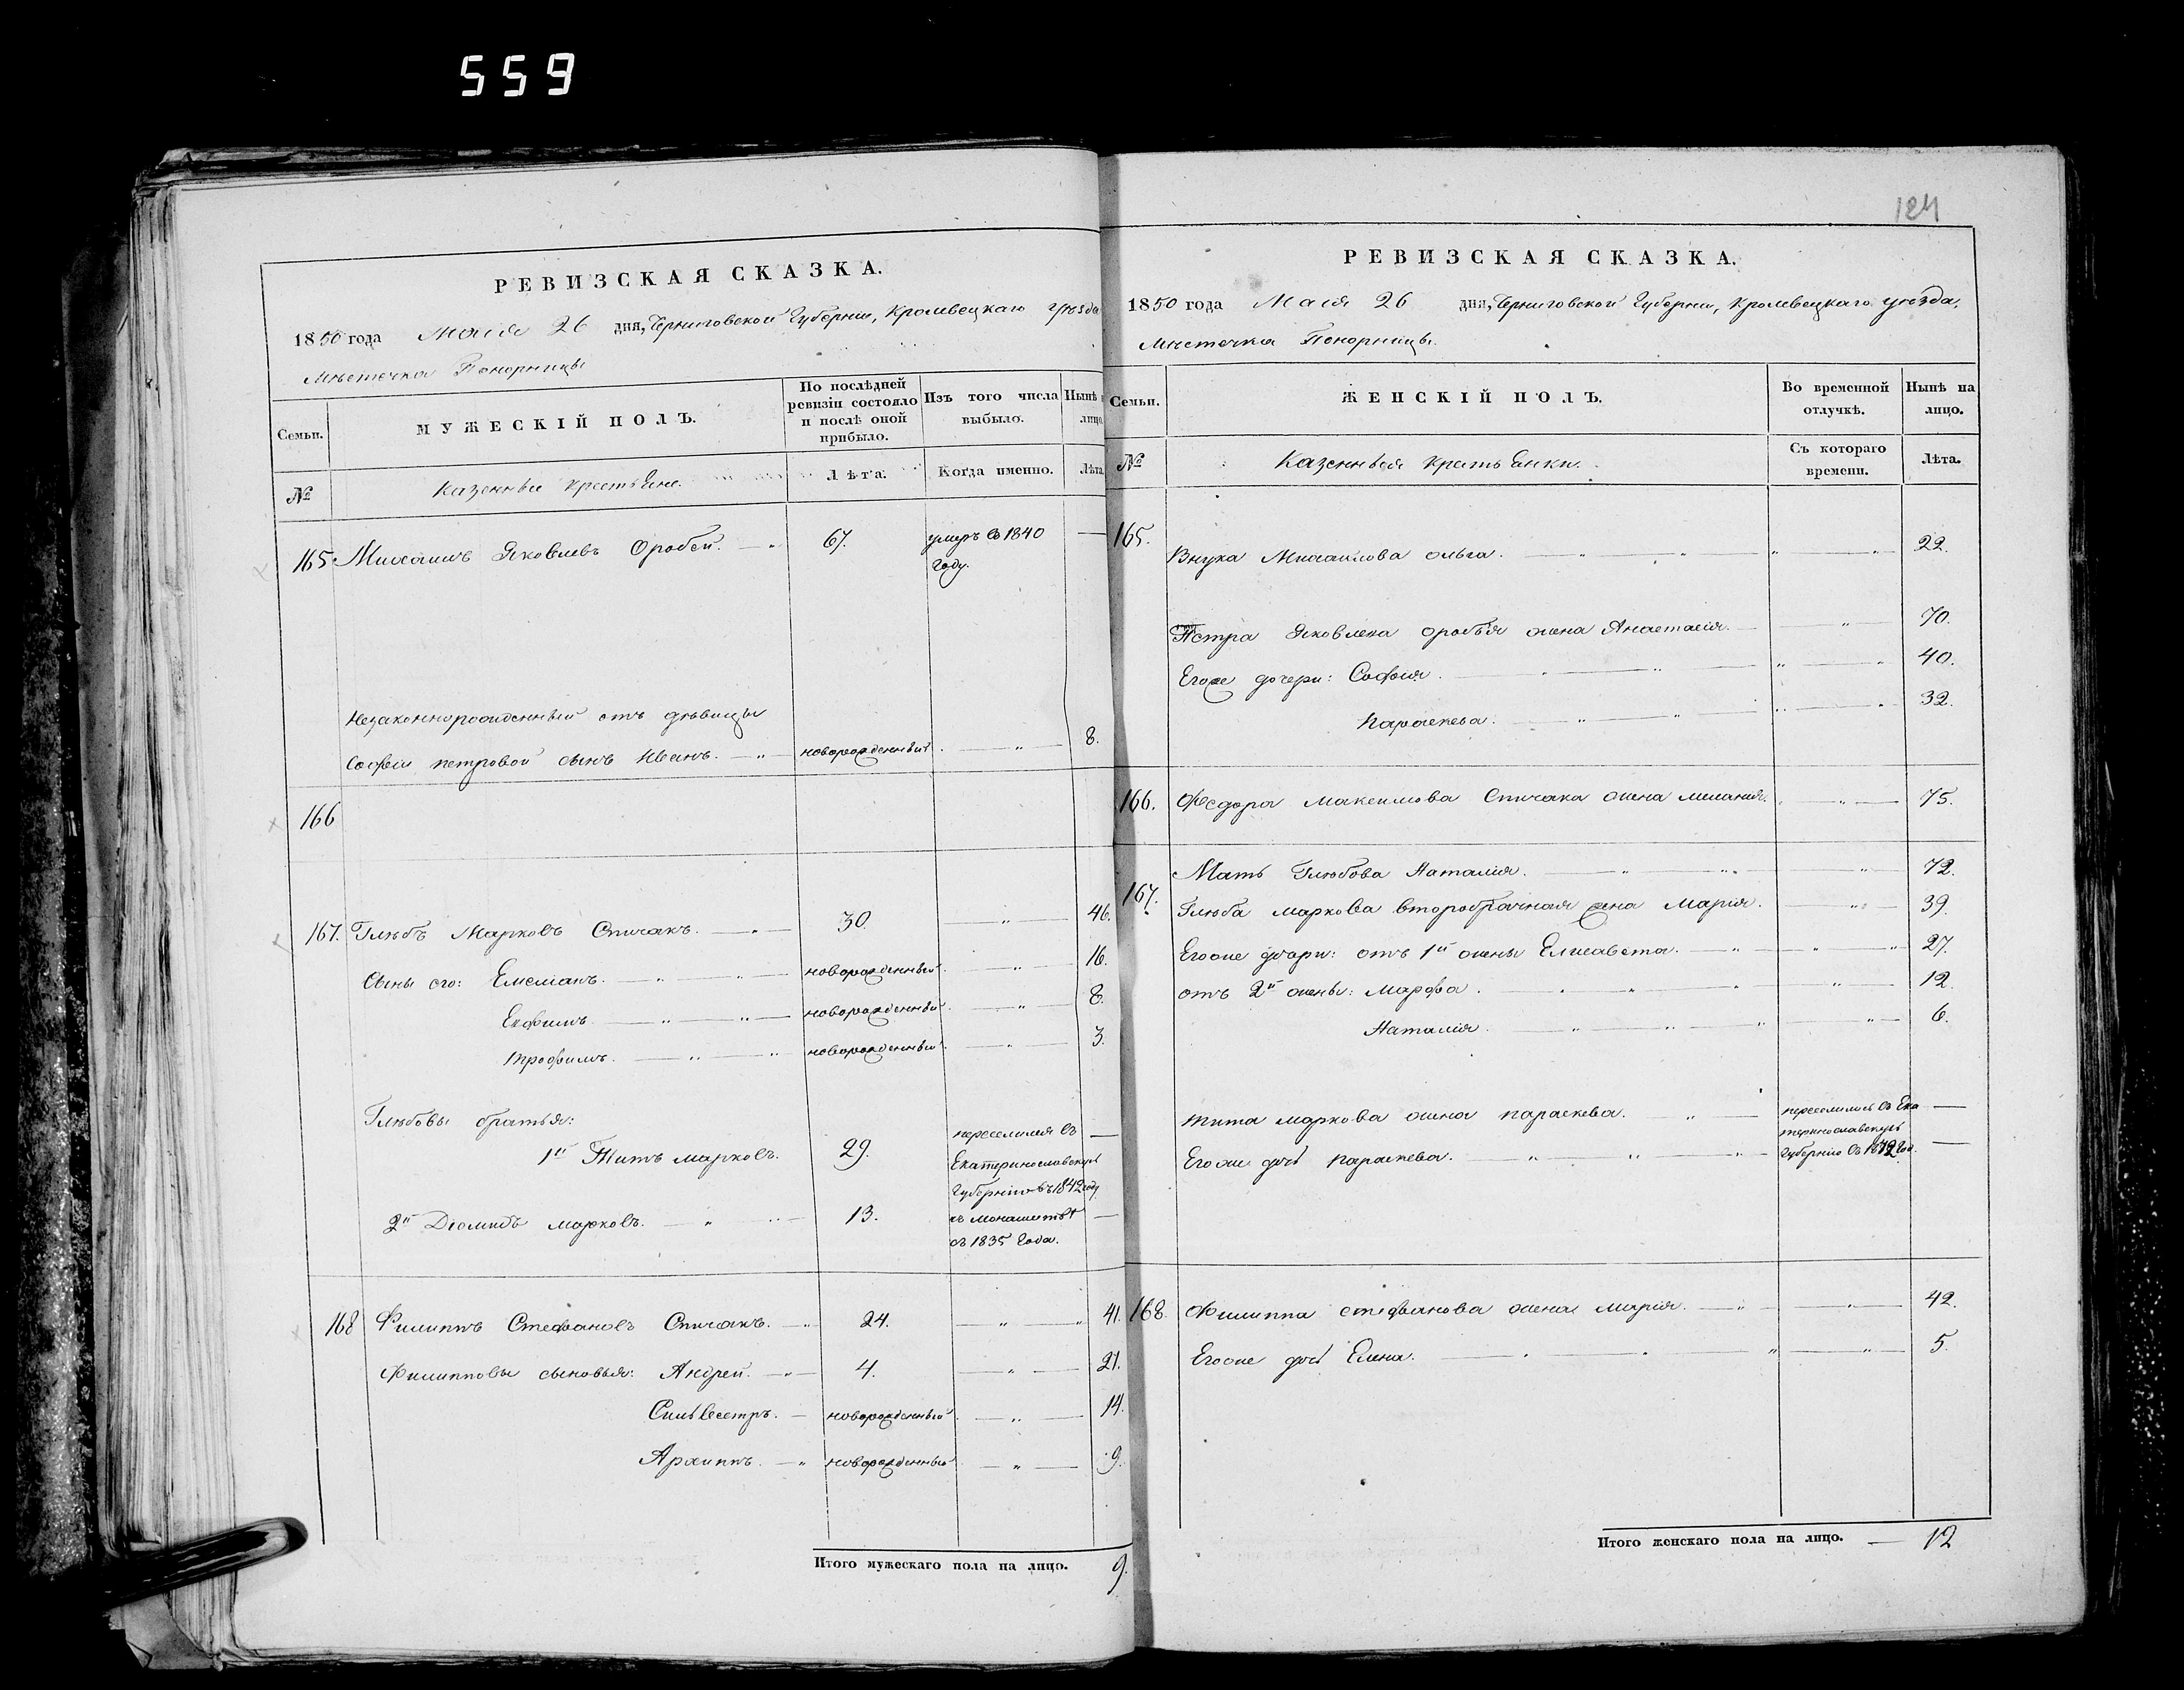 559
РЕВИЗСКАЯ СКАЗКА.
1850 года Маія 26 дня, Черниговской Губерніи, Кролевецкаго уѣзда
Мѣстечка Понорницы
Семьи.
МУЖЕСКІЙ ПОЛЪ.
По послѣдней ревизіи состояло и послѣ оной прибыло.
Изъ того числа выбыло.
Нынѣ лицо.
№
Казенные крестьяне.
Лѣта.
Когда именно.
Лѣта.
165 Михаилъ Яковлевъ Оробей. 67. умеръ въ 1840 —
году.
Незаконнорожденный отъ дѣвицы
Софьи Петровой сынъ Иванъ. новорожденный 8.
166
167. Глѣбъ Марковъ Спичакъ. 30. 46.
Сыны его: Емеліанъ. новорожденный. 16.
Евфимъ новорожденный. 8.
Трофимъ. новорожденный. 3.
Глѣбовы братья:
1й Титъ Марковъ. 29. переселился въ —
Екатеринославскую
Губернію въ 1842 году
2й Діомидъ Марковъ. 13. въ монашествѣ —
съ 1835 года.
168 Филиппъ Стефановъ Спичакъ. 24. 41.
Филипповы сыновья: Андрей. 4. 21.
Сильвестръ. новорожденный. 14.
Архиппъ. новорожденный 9.
Итого мужескаго пола на лицо. 9.
124
РЕВИЗСКАЯ СКАЗКА.
1850 года Маія 26 дня, Черниговской Губерніи, Кролевецкаго уѣзда,
Мѣстечка Понорницы.
Семьи.
ЖЕНСКІЙ ПОЛЪ.
Во временной отлучкѣ.
Нынѣ на лицо.
№
Казенныя крестьянки.
Съ котораго времени.
Лѣта.
165.
Внука Михаилова Ольга. 22.
Петра Яковлева Оробья жена Анастасія. 70.
Егоже дочери: Софія. 40.
Параскева. 32.
166. Федора Максимова Спичака жена Меланія. 75.
167. Мать Глѣбова Наталія. 72.
Глѣба Маркова второбрачная жена Марія. 39.
Егоже дочери: отъ 1й жены Елисавета. 27.
отъ 2й жены: Марфа. 12.
Наталія. 6.
Тита Маркова жена Параскева. переселились въ Ека —
теринославскую
Егоже дочь Параскева. Губернію въ 1842 год. —
168. Филиппа Стефанова жена Марія. 42.
Егоже дочь Елена. 5.
Итого женскаго пола на лицо. — 12